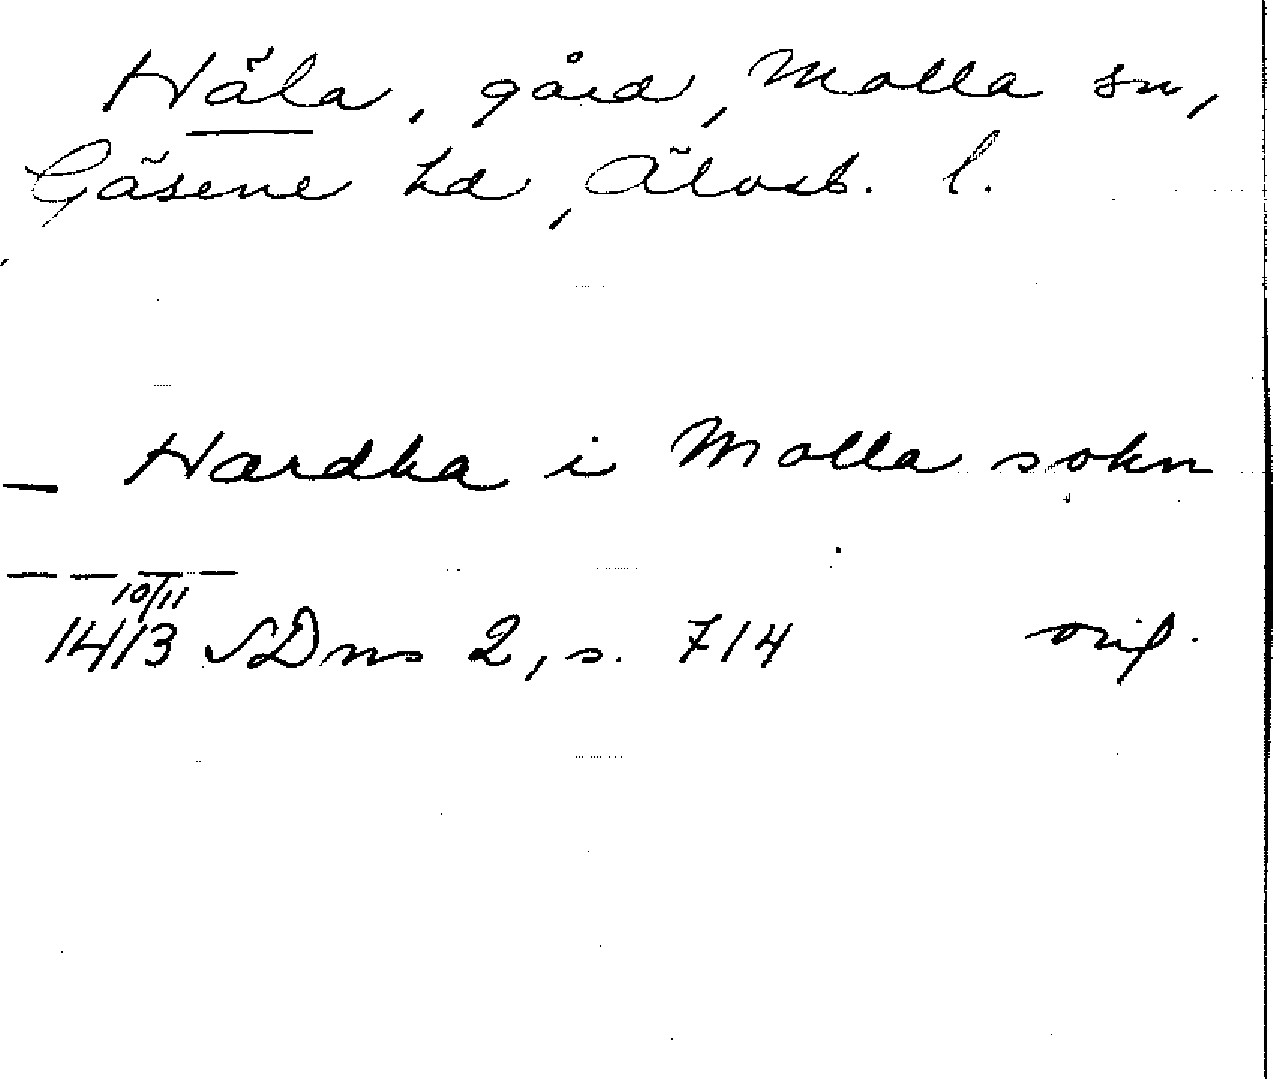 Häla, gård, Molla sn,
Gäsene hd, Älvsb. l.
_ Hardha i Molla sokn
_ _ _ _
10/11
1413 SDns 2, s. 714 orig.